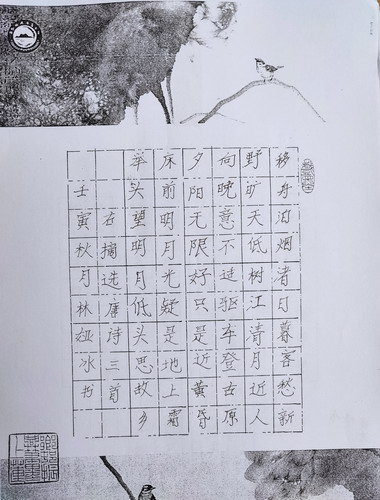 移舟泊烟渚日暮客愁新
野旷天低树江清月近人
向晚意不适驱车登古原
夕阳无限好只是近黄昏
床前明月光疑是地上霜
举头望明月低头思故乡
右摘选唐诗三首
壬寅秋月林娅冰书